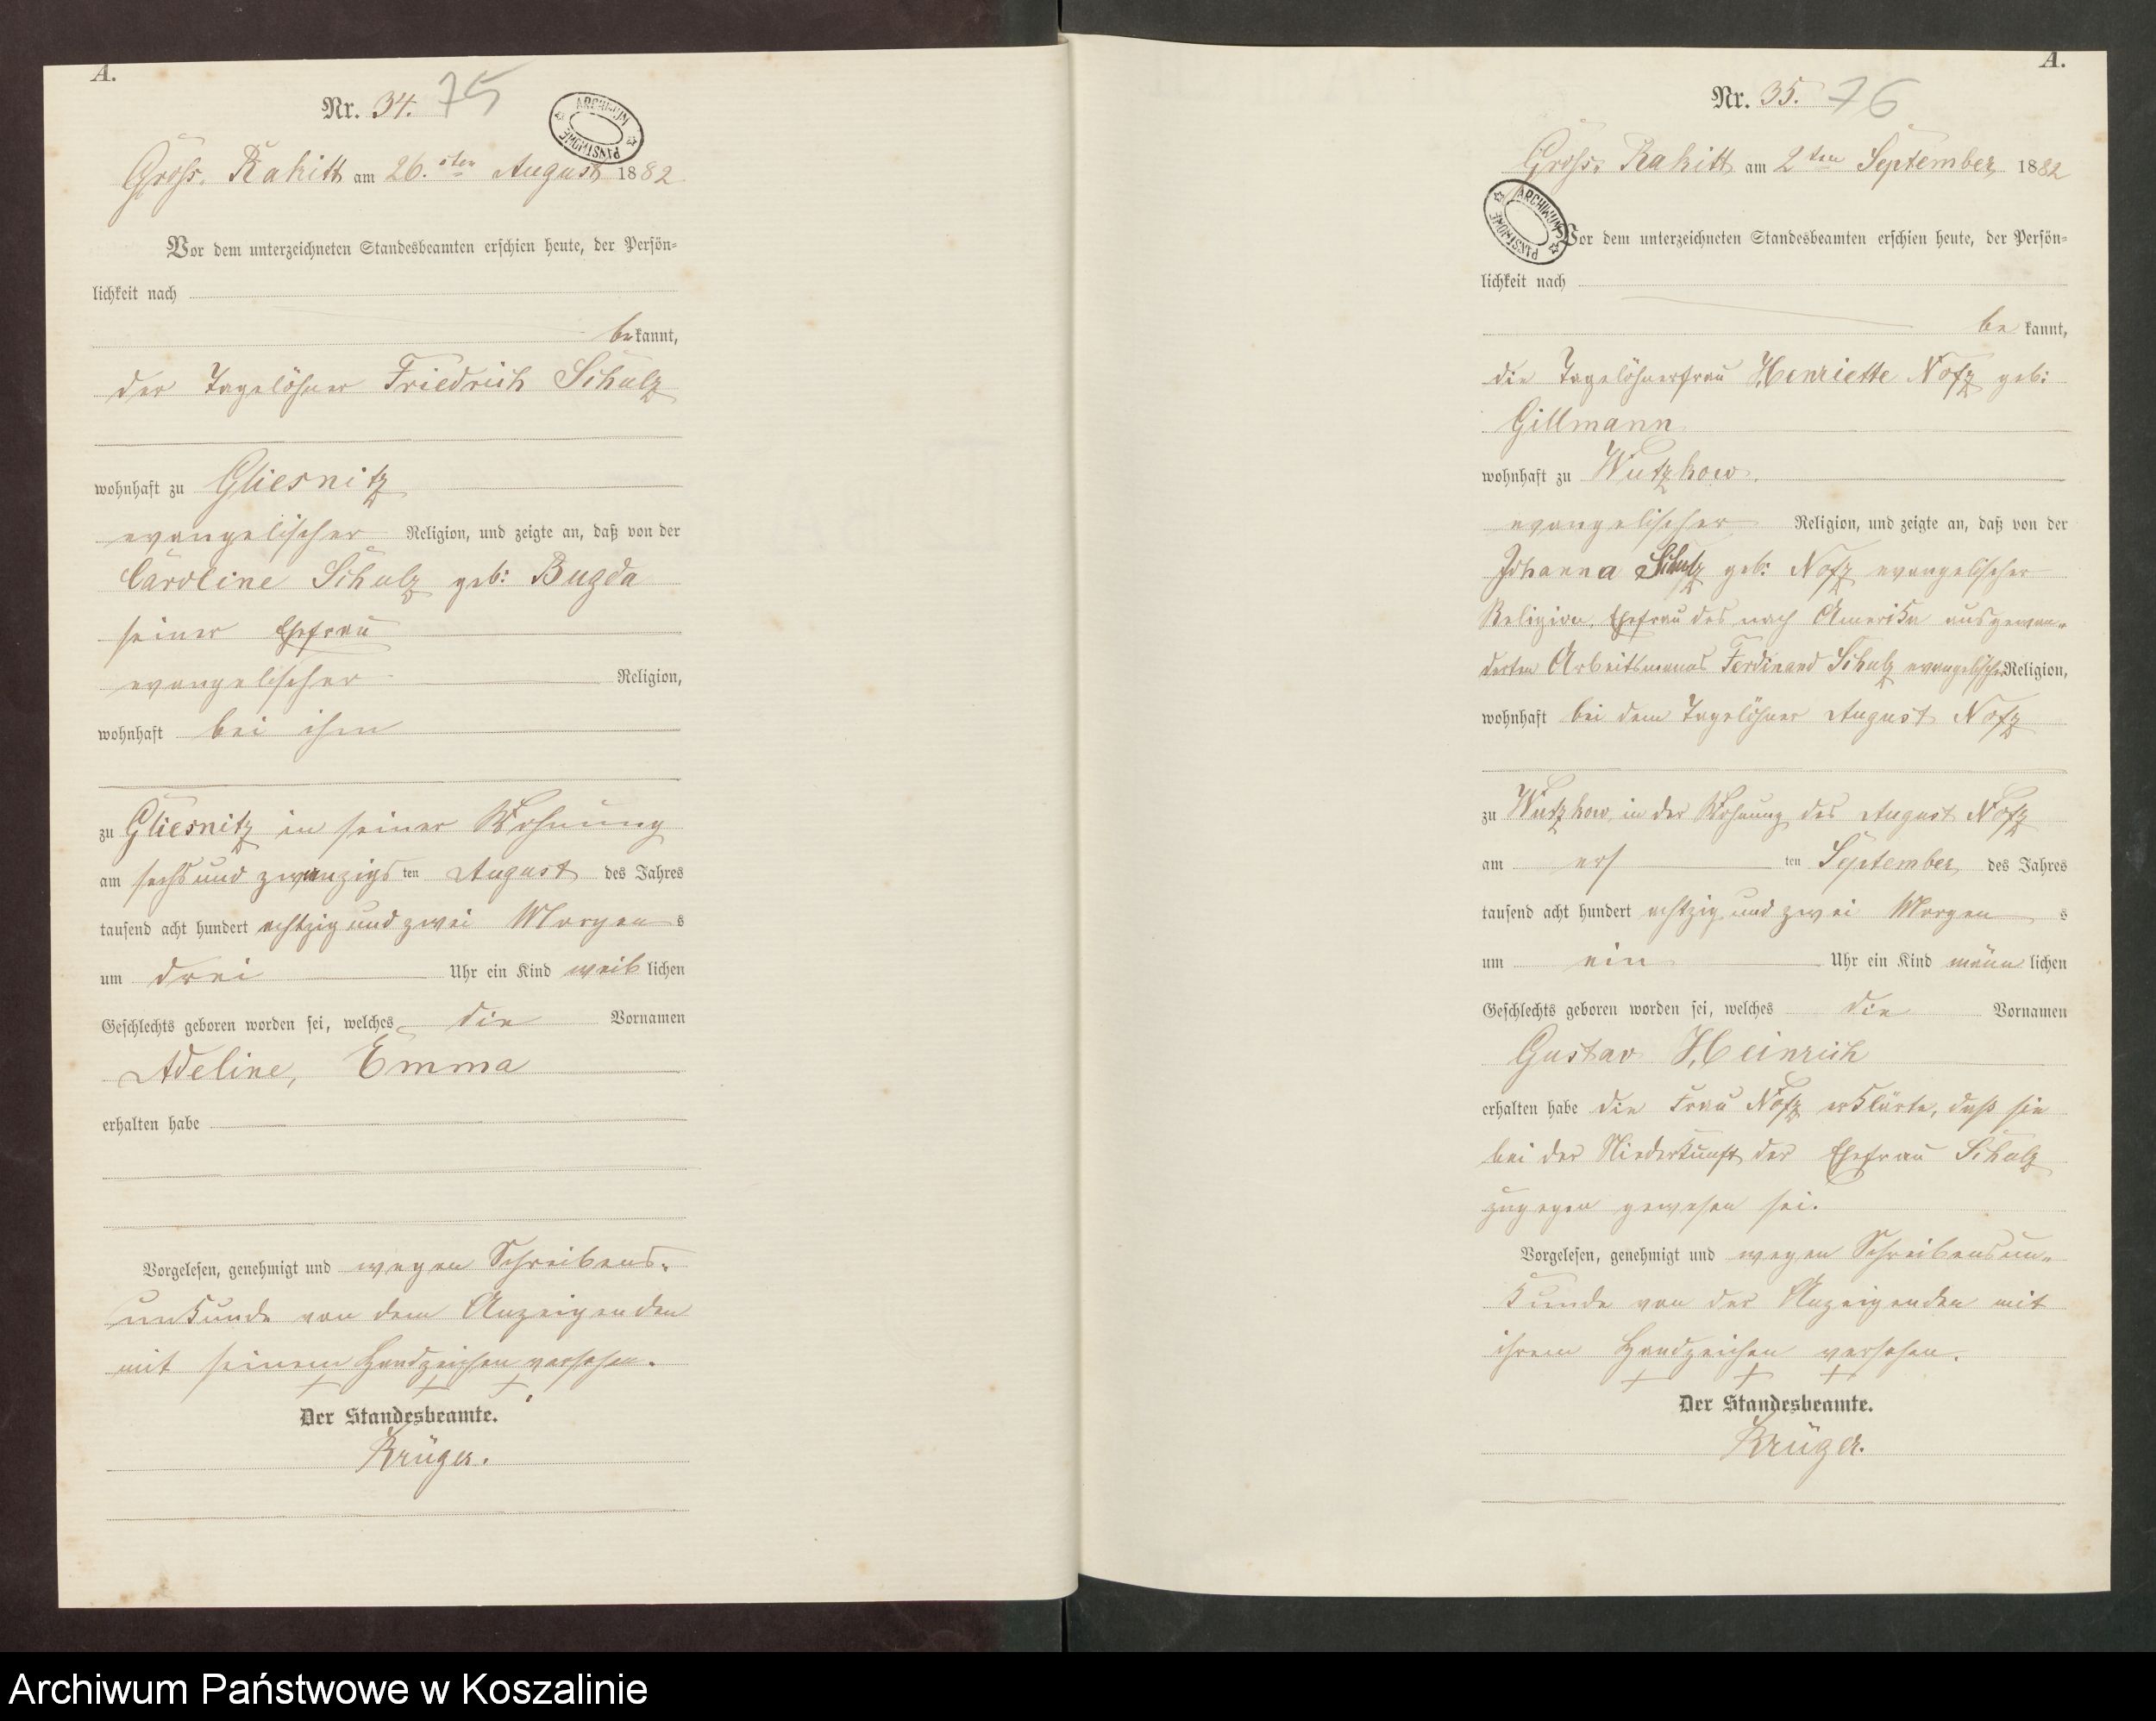 A.
Nr. 34. 75
ARCHIWUM PAŃSTWOWE
Gross. Rakitt am 26.sten August 1882
Vor dem unterzeichneten Standesbeamten erschien heute, der Persön-
lichkeit nach
bekannt,
der Tagelöhner Friedrich Schulz
wohnhaft zu Gliesnitz
evangelischer Religion, und zeigte an, daß von der
Caroline Schulz geb: Bugda
seiner Ehefrau
evangelischer Religion,
wohnhaft bei ihm
zu Gliesnitz in seiner Wohnung
am sechsundzwanzigsten August des Jahres
tausend acht hundert achtzig und zwei Morgens
um drei Uhr ein Kind weiblichen
Geschlechts geboren worden sei, welches die Vornamen
Adeline, Emma
erhalten habe
Vorgelesen, genehmigt und wegen Schreibens-
unkunde von dem Anzeigenden
mit seinem Handzeichen versehen.
+ + +
Der Standesbeamte.
Krüger.
A.
Nr. 35. 76
Gross. Rakitt am 2ten September 1882
ARCHIWUM PAŃSTWOWE
Vor dem unterzeichneten Standesbeamten erschien heute, der Persön-
lichkeit nach
be kannt,
die Tagelöhnerfrau Henriette Notz geb:
Gillmann
wohnhaft zu Wutzkow.
evangelischer Religion, und zeigte an, daß von der
Johanna Schulz geb: Notz evangelischer
Religion, Ehefrau des nach Amerika ausgewan-
derten Arbeitsmanns Ferdinand Schulz evangelischer Religion,
wohnhaft bei dem Tagelöhner August Notz
zu Wutzkow, in der Wohnung des August Notz
am ersten September des Jahres
tausend acht hundert achtzig und zwei Morgens
um ein Uhr ein Kind männlichen
Geschlechts geboren worden sei, welches die Vornamen
Gustav Heinrich
erhalten habe die Frau Notz erklärte, daß sie
bei der Niederkunft der Ehefrau Schulz
zugegen gewesen sei.
Vorgelesen, genehmigt und wegen Schreibensun-
kunde von der Anzeigenden mit
ihrem Handzeichen versehen.
+ + +
Der Standesbeamte.
Krüger.
Archiwum Państwowe w Koszalinie